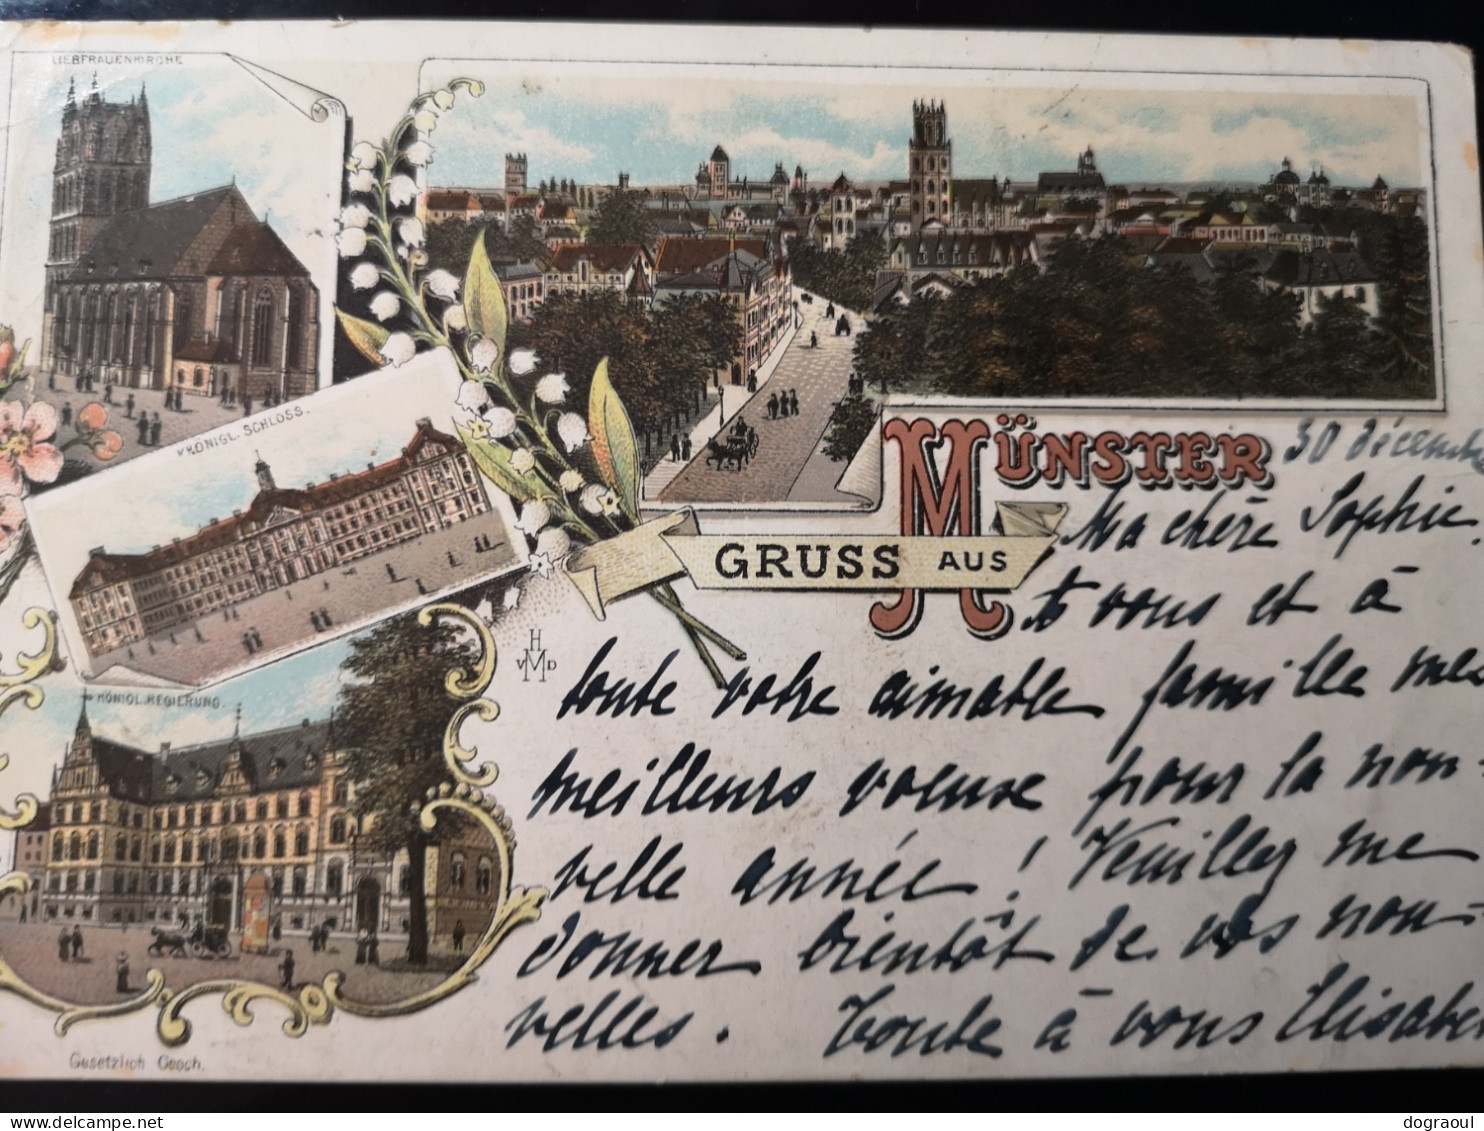 LIEBFRAUENKIRCHE
KÖNIGL. SCHLOSS.
KÖNIGL. REGIERUNG.
MÜNSTER
GRUSS AUS
30 décembre
Ma chère Sophie.
à vous et à
toute votre aimable famille mes
meilleurs voeux pour la nou-
velle année! Veuillez me
donner bientôt de vos nou-
velles. Toute à vous Elisabe
H
V M D
Gesetzlich Gesch.
dograoul